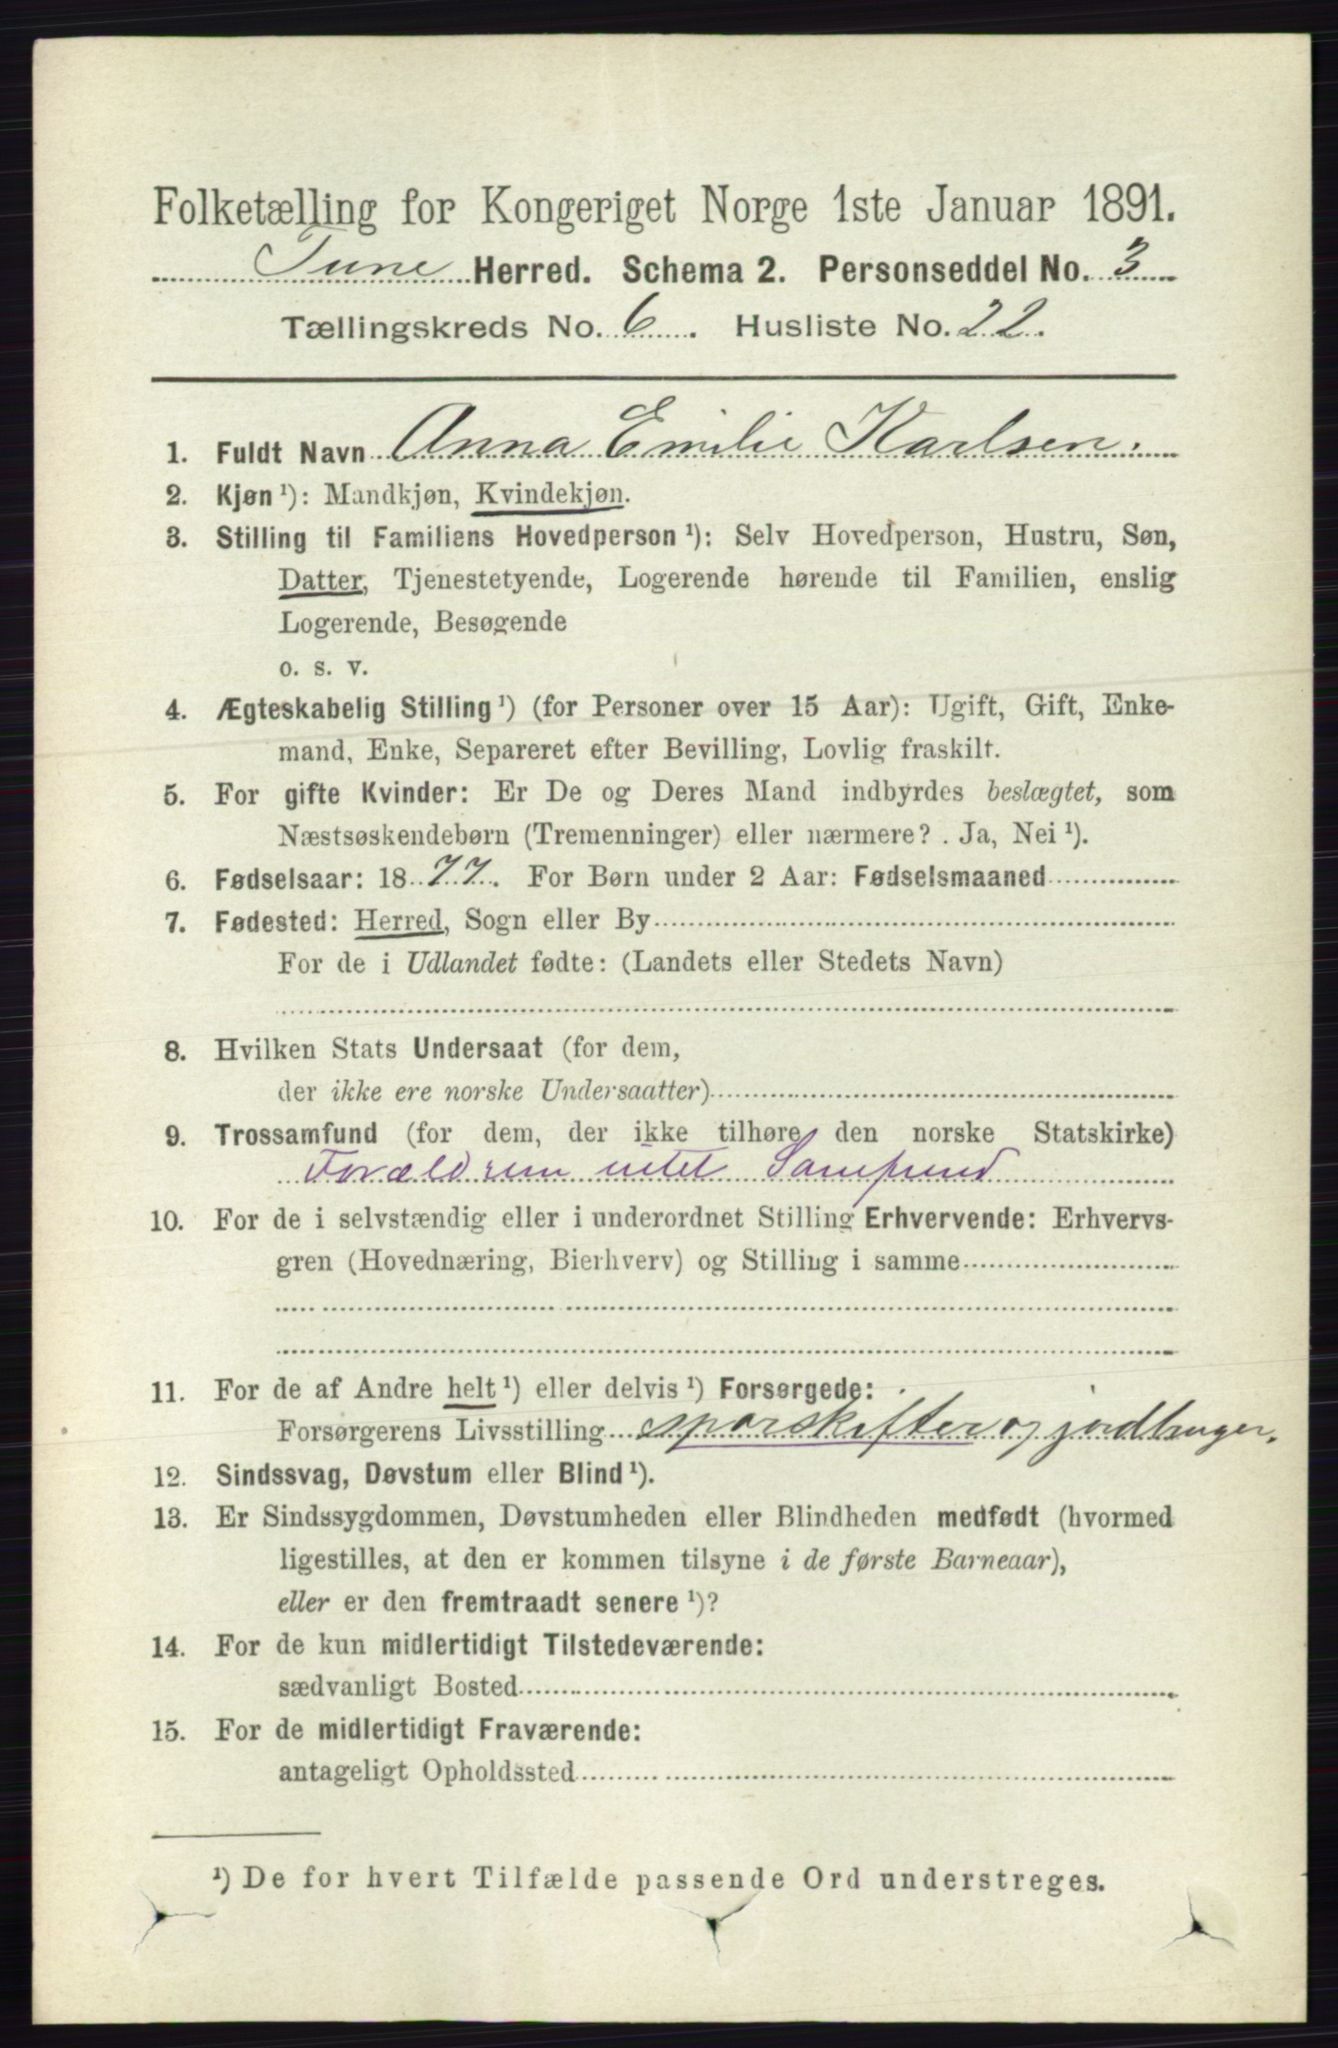 Folketælling for Kongeriget Norge 1ste Januar 1891.
Tune Herred. Schema 2. Personseddel No. 3
Tællingskreds No. 6. Husliste No. 22.
1. Fuldt Navn Anna Emilie Karlsen.
2. Kjøn ¹): Mandkjøn, Kvindekjøn.
3. Stilling til Familiens Hovedperson ¹): Selv Hovedperson, Hustru, Søn,
Datter, Tjenestetyende, Logerende hørende til Familien, enslig
Logerende, Besøgende
o. s. v.
4. Ægteskabelig Stilling ¹) (for Personer over 15 Aar): Ugift, Gift, Enke-
mand, Enke, Separeret efter Bevilling, Lovlig fraskilt.
5. For gifte Kvinder: Er De og Deres Mand indbyrdes beslægtet, som
Næstsøskendebørn (Tremenninger) eller nærmere? . Ja, Nei ¹).
6. Fødselsaar: 1877. For Børn under 2 Aar: Fødselsmaaned
7. Fødested: Herred, Sogn eller By
For de i Udlandet fødte: (Landets eller Stedets Navn)
8. Hvilken Stats Undersaat (for dem,
der ikke ere norske Undersaatter)
9. Trossamfund (for dem, der ikke tilhøre den norske Statskirke)
Forældrene intet Samfund
10. For de i selvstændig eller i underordnet Stilling Erhvervende: Erhvervs-
gren (Hovednæring, Bierhverv) og Stilling i samme
11. For de af Andre helt ¹) eller delvis ¹) Forsørgede:
Forsørgerens Livsstilling sporskifter og jordbruger.
12. Sindssvag, Døvstum eller Blind ¹).
13. Er Sindssygdommen, Døvstumheden eller Blindheden medfødt (hvormed
ligestilles, at den er kommen tilsyne i de første Barneaar),
eller er den fremtraadt senere ¹)?
14. For de kun midlertidigt Tilstedeværende:
sædvanligt Bosted
15. For de midlertidigt Fraværende:
antageligt Opholdssted
¹) De for hvert Tilfælde passende Ord understreges.